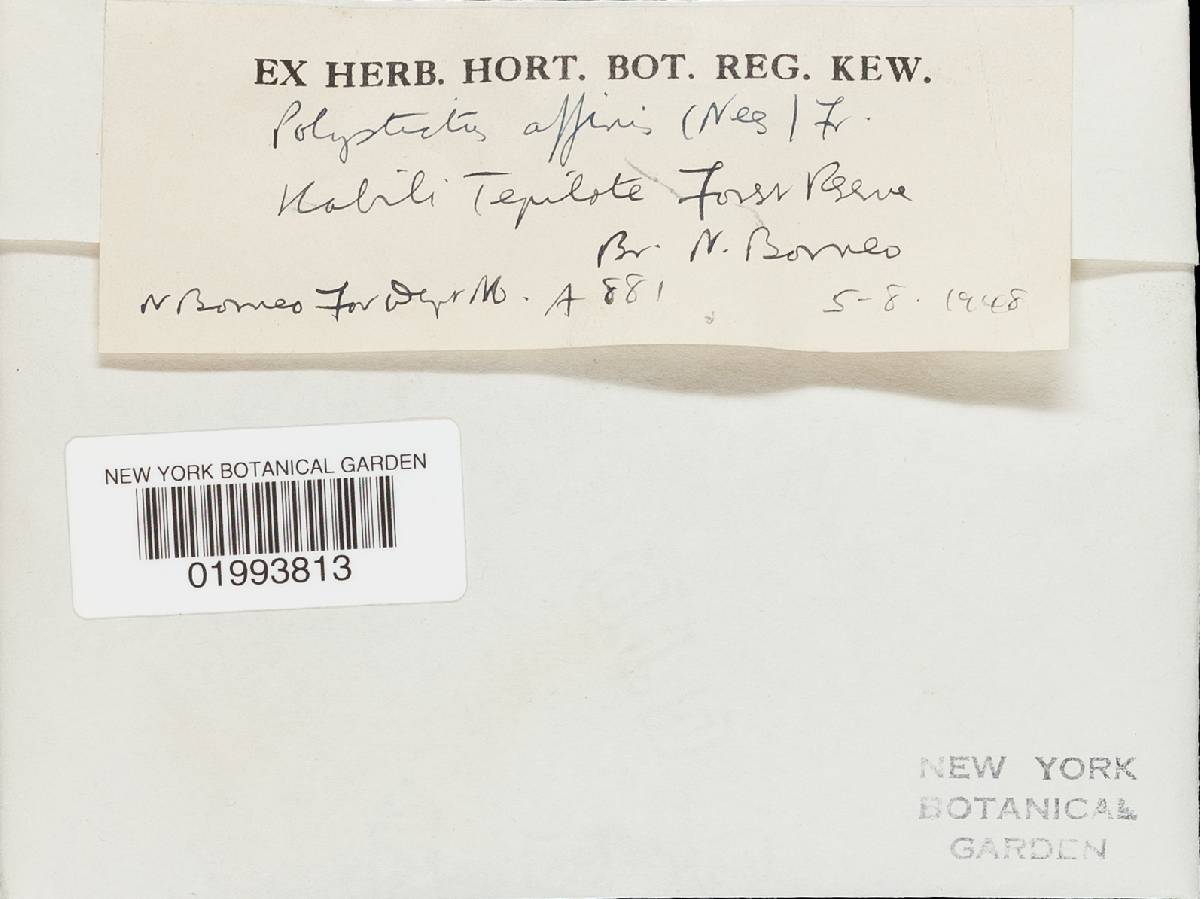 EX HERB. HORT. BOT. REG. KEW.
Polystictus affinis (Nees) Fr.
Kabili Tepilote Forest Reserve
Br. N. Borneo
N Borneo For Dept No. A 881 5-8. 1948
NEW YORK BOTANICAL GARDEN
01993813
NEW YORK
BOTANICAL
GARDEN